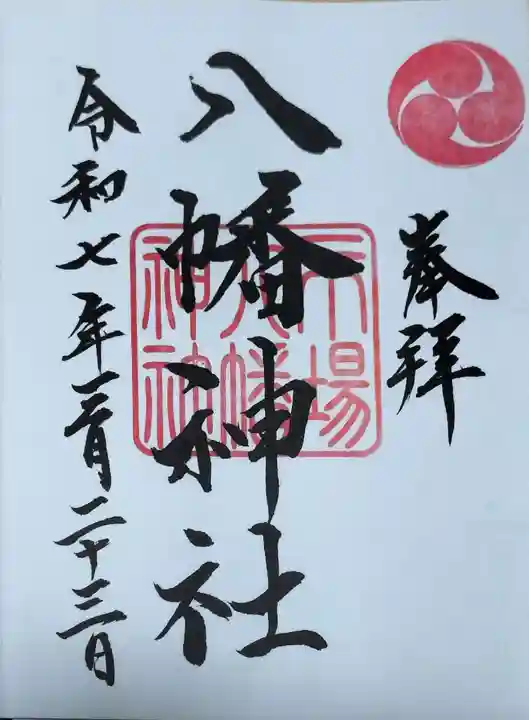 奉拝
八幡神社
令和七年三月二十三日
場
八幡
神社